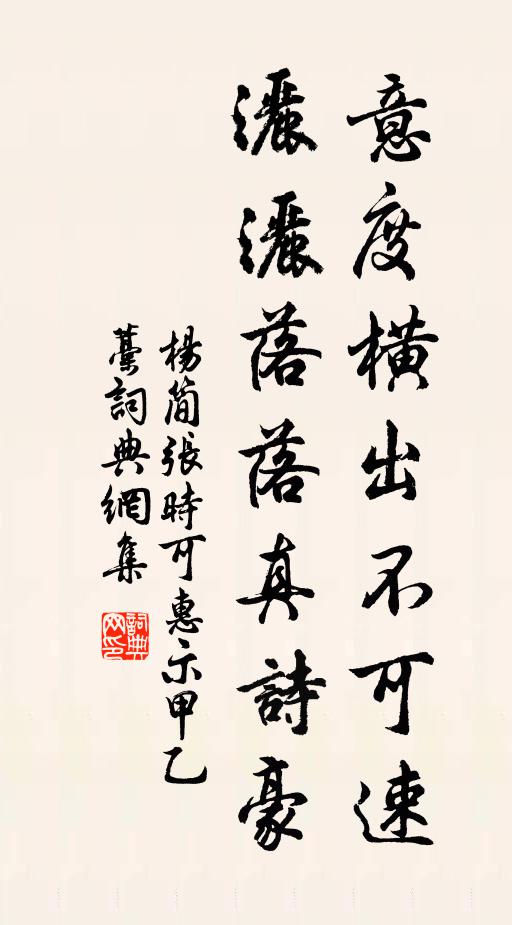 意度橫出不可速
灑灑落落真詩豪
楊簡張時可惠示甲乙
藁詞典網集
詞典网印